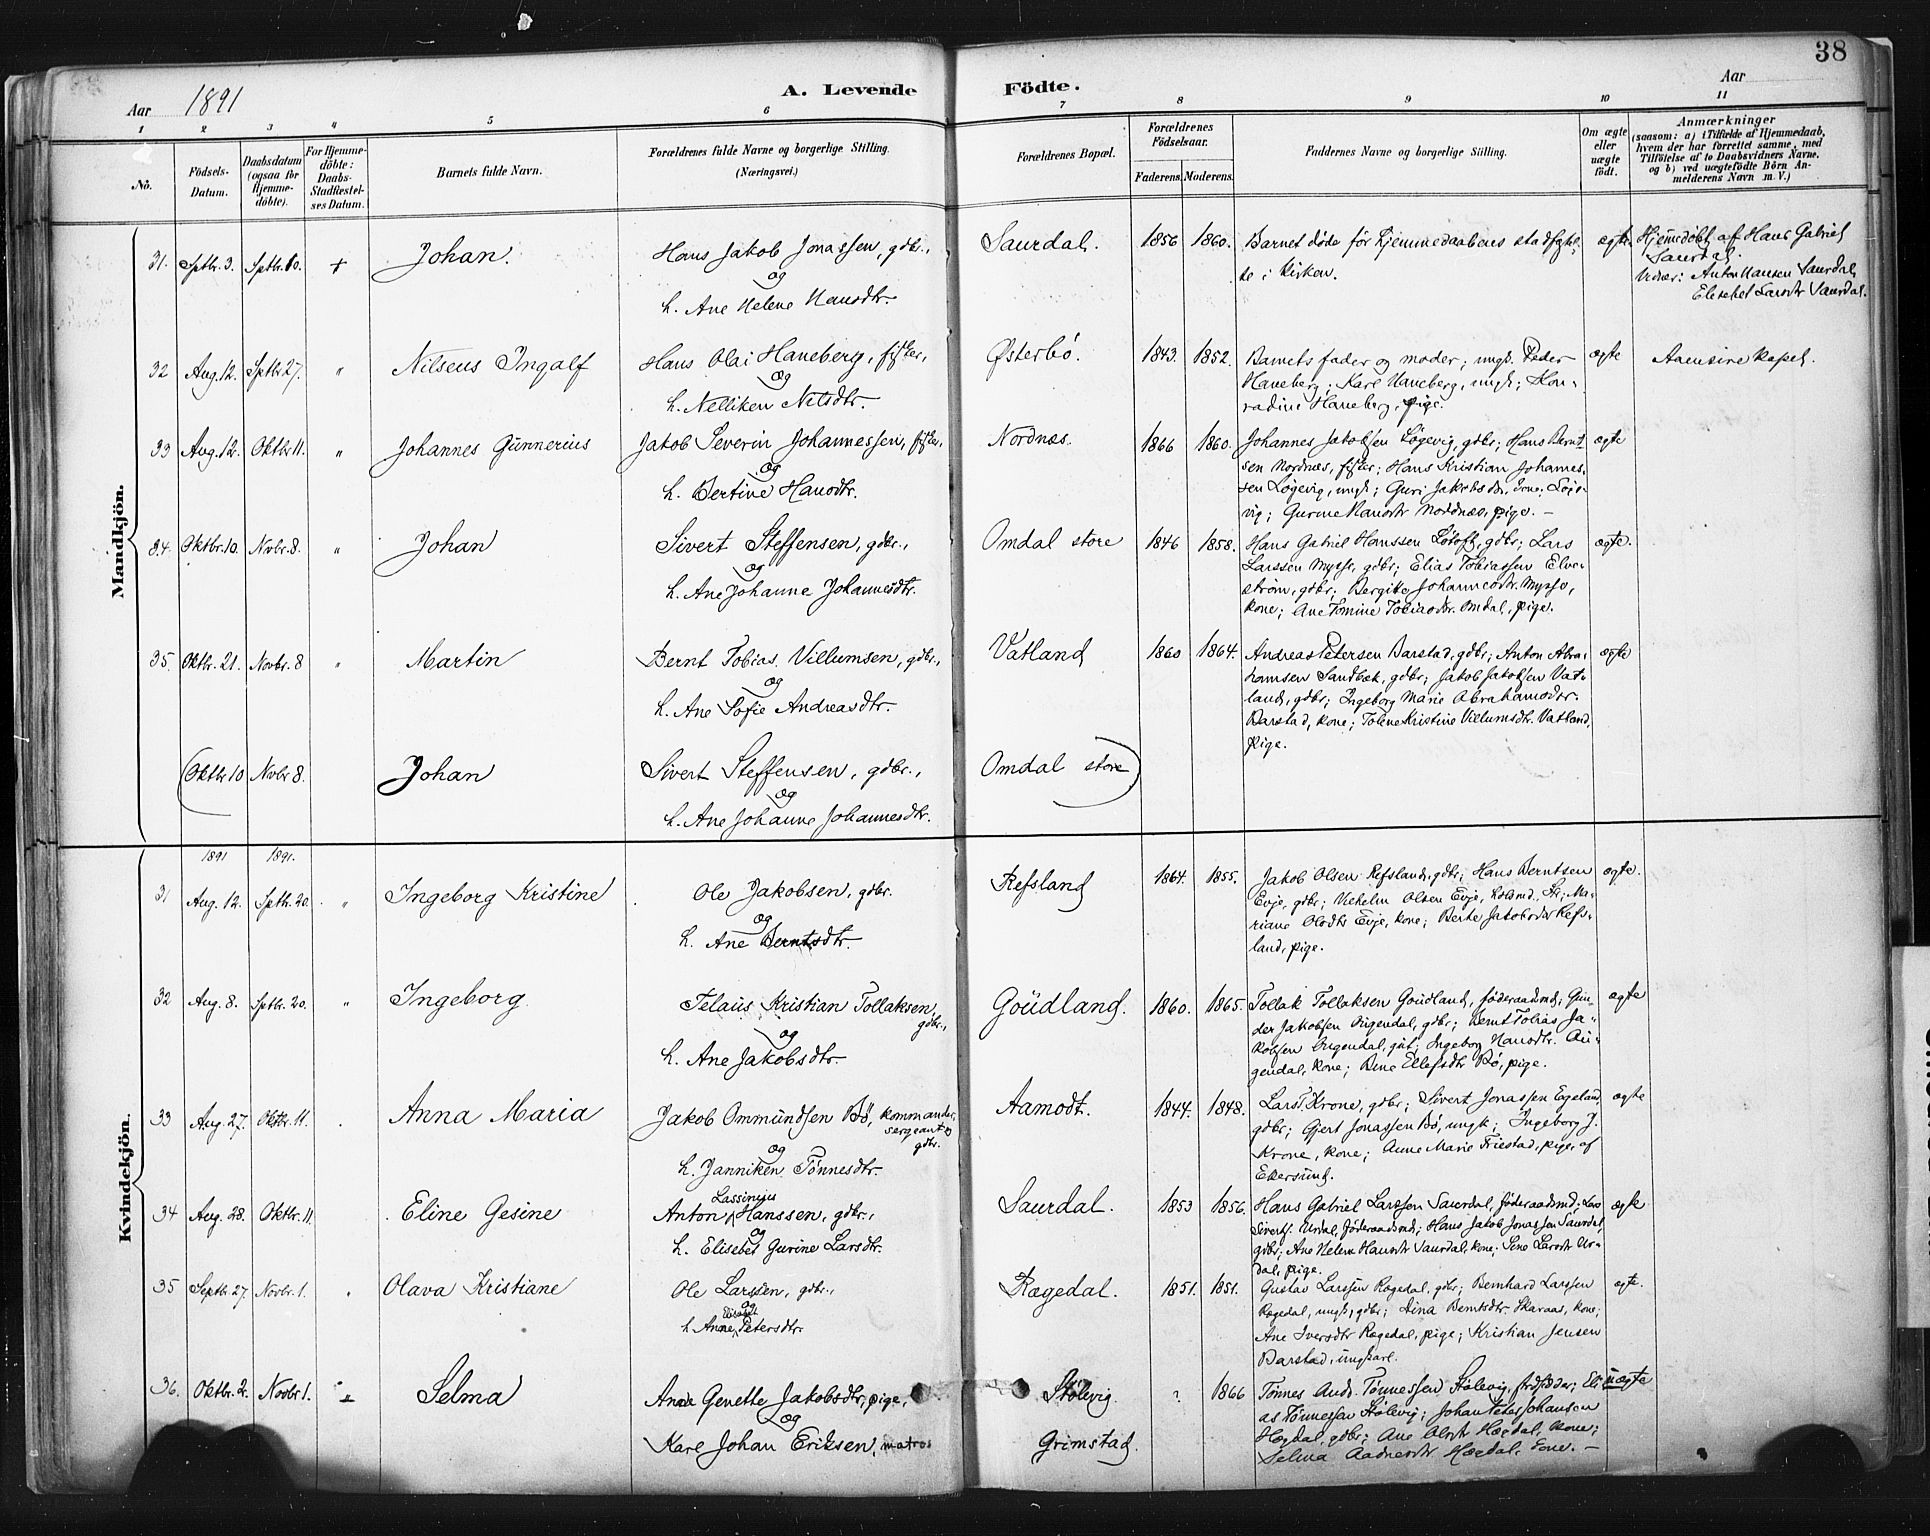 38
Aar 1891 A. Levende Födte. Aar
1 2 3 4 5 6 7 8 9 10 11
No.
Födsels-Datum.
Daabsdatum (ogsaa for Hjemme-döbte).
For Hjemme-döbte: Daabs-Stadfæstel-ses Datum.
Barnets fulde Navn.
Forældrenes fulde Navne og borgerlige Stilling. (Næringsvei.)
Forældrenes Bopæl.
Forældrenes Födselsaar.
Faderens. Moderens.
Faddernes Navne og borgerlige Stilling.
Om ægte eller uægte födt.
Anmærkninger
(saasom: a) i Tilfælde af Hjemmedaab,
hvem der har forrettet samme, med
Tilföielse af to Daabsvidners Navne.
og b) ved uægtefödte Börn An-
melderens Navn m. V.)
Mandkjön.
31. Sptbr. 3. Sptbr. 10. + Johan. Hans Jakob Jonassen, gdbr., og h. Ane Helene Hansdtr. Saurdal. 1856 1860. Barnet døde før hjemmedaabens stadfæstel-
se i kirken. ægte. Hjemmedøbt af Hans Gabriel
Saurdal.
Vidner: Anton Hansen Saurdal,
Elisebet Larsdtr Saurdal.
32 Aug. 12. Sptbr. 27. " Nilseus Ingalf Hans Olai Haneberg, fisker, og h. Nelliken Nilsdtr. Østerbö. 1843. 1852. Barnets fader og moder; ungk. Peder
Haneberg; Karl Haneberg, ungk; Kon-
radine Haneberg, pige. ægte Aaensire kapel.
33 Aug. 12. Oktbr 11. " Johannes Gunnerius Jakob Severin Johannessen, fisker, og h. Bertine Hansdtr. Nordnæs. 1866 1860. Johannes Jakobsen Løgevig, gdbr; Hans Bernt-
sen Nordnæs, fisker; Hans Kristian Johannes-
sen Løgevig, ungk; Guri Jakobsdtr, kone, Løge-
vig; Gurine Hansdtr Nordnæs, pige. — ægte
34. Oktbr. 10. Nvbr. 8. " Johan Sivert Steffensen, gdbr., og h. Ane Johanne Johannesdtr. Omdal store 1846 1858. Hans Gabriel Hanssen gdbr; Lars
Larssen Mysse, gdbr; Elias Tobiassen Elve-
strøm, gdbr; Bergite Johannesdtr. Mysse,
kone; Ane Tomine Tobiasdtr. Omdal, pige. ægte.
35. Oktbr. 21. Novbr. 8 " Martin Bernt Tobias Villumsen, gdbr., og h. Ane Sofie Andreasdtr. Vatland 1860 1864. Andreas Petersen Barstad, gdbr; Anton Abra-
hamsen Sandbæk, gdbr; Jakob Jakobsen Vat-
land, gdbr; Ingeborg Marie Abrahamsdtr.
Barstad, kone; Tolene Kristine Villumsdtr. Vatland,
pige. ægte
(Oktbr 10 Nvbr 8. Johan Sivert Steffensen, gdbr., og h. Ane Johanne Johannesdtr. Omdal store)
Kvindekjön.
1891 1891.
31 Aug. 12. Sptb. 20. " Ingeborg Kristine Ole Jakobsen, gdbr. og h. Ane Berntsdtr. Refsland 1864. 1855. Jakob Olsen Refsland, gdbr; Hans Berntsen
Evje, gdbr; Vilhelm Olsen Evje, Ma-
riane Olsdtr Evje, kone; Berte Jakobsdtr Refs-
land, pige. ægte.
32 Aug. 8. Sptbr. 20. " Ingeborg Telaus Kristian Tollaksen, gdbr., og h. Ane Jakobsdtr. Goudland. 1860. 1865. Tollak Tollaksen Goudland, føderaadsmd; Gun-
der Jakobsen gdbr; Bernt Tobias Ja-
kobsen gut; Ingeborg Hansdtr. Au-
gendal, kone; Bene Ellefsdtr Bö, pige. ægte
33 Aug. 27. Oktbr. 11. Anna Maria Jakob Ommundsen Bö, kommander-
sergeant og
gdbr. og h. Janniken Tönnesdtr. Aamodt. 1844. 1848. Lars T. Krone, gdbr; Sivert Jonassen Egeland,
gdbr; Gjert Jonassen Bö, ungk; Ingeborg J.
Krone, kone; Anne Marie Friestad, pige, af
Ekersund. ægte
34 Aug. 28. Oktbr. 11. Eline Gesine Anton Lassinius Hanssen, gdbr., og h. Elisebet Gurine Larsdtr. Saurdal. 1853 1856. Hans Gabriel Larssen Saurdal, føderaadsmd; Lars
Siverts. Urdal, føderaadsmd; Hans Jakob Jonassen Saurdal,
gdbr; Ane Helene Hansdtr Saurdal, kone; Sene Larsdtr Ur-
dal, pige. ægte
35 Septbr 27. Novbr. 1. " Olava Kristiane Ole Larssen, gdbr., og h. Anne Petersdtr. Rægedal. 1851. 1851. Gustav Larssen Rægedal, gdbr; Bernhard Larssen
Rægedal, ungk, gdbr; Dina Berntsdtr. Skaraas, kone;
Ane Iversdtr Rægedal, pige; Kristian Jensen
Barstad, ungkarl. ægte.
36. Oktbr. 2. Novbr 1. Selma Ane Genette Jakobsdtr, pige, og Karl Johan Eriksen, matros Stölevig. Grimstad. ? 1866 Tönnes Andr. Tönnessen Stölevig, Eli-
as Tönnessen Stölevig; Johan Peter Johansen
Hægdal, gdbr; Ane Olsdtr Hægdal, kone;
Selma Aadnesdtr Hægdal, kone. — uægte